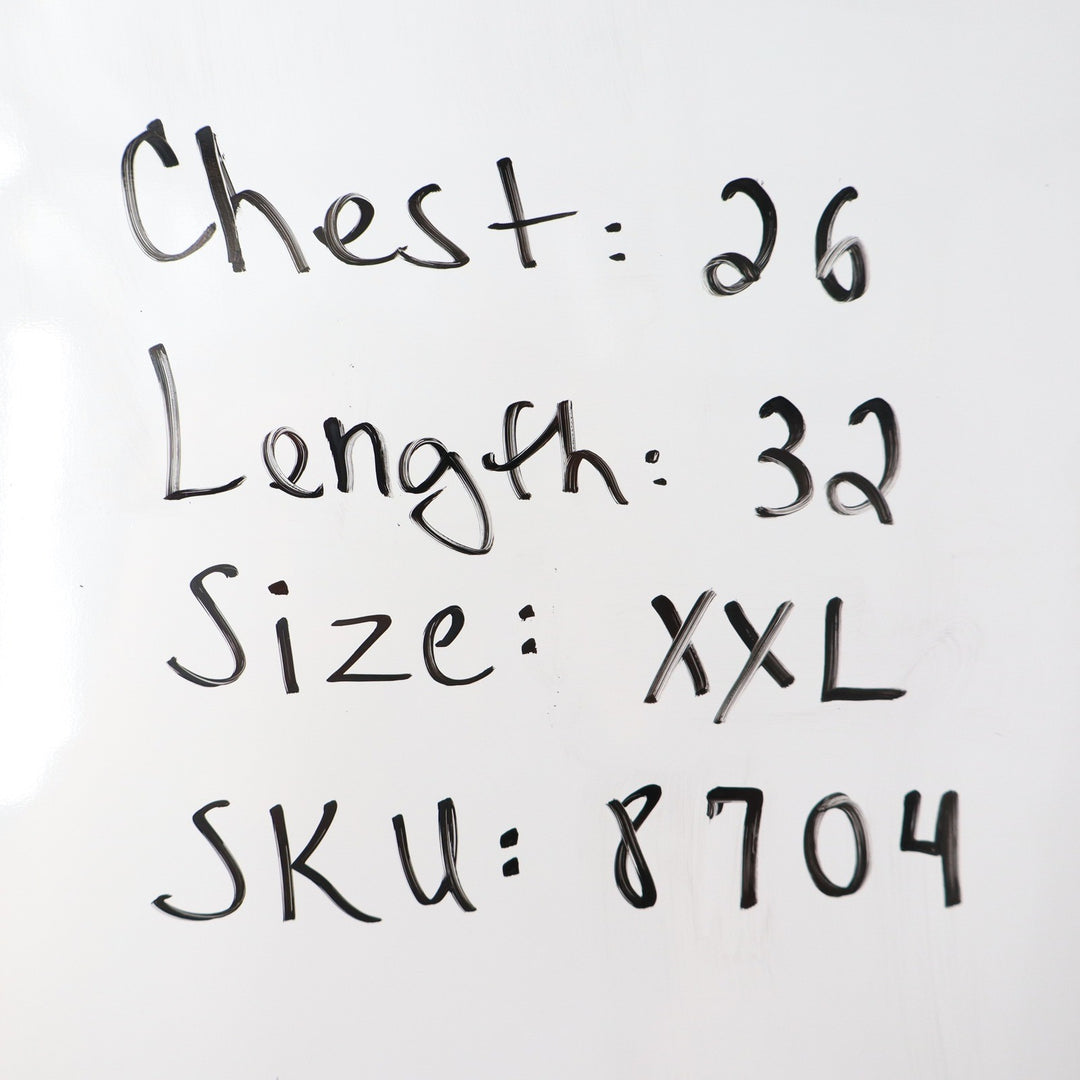 Chest: 26
Length: 32
Size: XXL
SKU: 8704